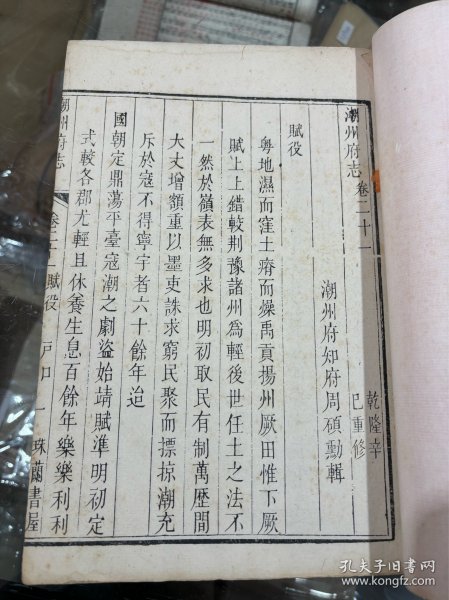 潮州府志 卷二十一
乾隆辛
巳重修
潮州府知府周碩勳輯
賦役
粵地濕而窪土瘠而燥禹貢揚州厥田惟下厥
賦上上錯較荆豫諸州爲輕後世任土之法不
一然於嶺表無多求也明初取民有制萬歷間
大丈增額重以墨吏誅求窮民聚而摽掠潮充
斥於寇不得寧宇者六十餘年迨
國朝定鼎蕩平臺寇潮之劇盜始靖賦準明初定
式較各郡尤輕且休養生息百餘年樂樂利利
潮州府志
卷二十一 賦役 戸口 一
珠蘭書屋
孔夫子旧书网
www.kongfz.com